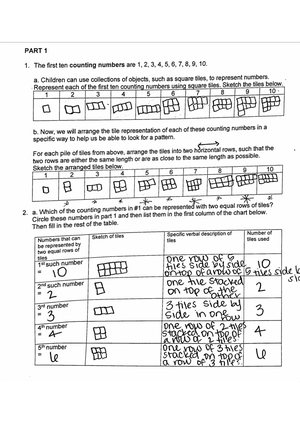 PART 1
1. The first ten counting numbers are 1, 2, 3, 4, 5, 6, 7, 8, 9, 10.
a. Children can use collections of objects, such as square tiles, to represent numbers.
Represent each of the first ten counting numbers using square tiles. Sketch the tiles below.
1 2 3 4 5 6 7 8 9 10
b. Now, we will arrange the tile representation of each of these counting numbers in a
specific way to help us be able to look for a pattern.
For each pile of tiles from above, arrange the tiles into two horizontal rows, such that the
two rows are either the same length or are as close to the same length as possible.
Sketch the arranged tiles below.
1 2 3 4 5 6 7 8 9 10
2. a. Which of the counting numbers in #1 can be represented with two equal rows of tiles?
Circle these numbers in part 1 and then list them in the first column of the chart below.
Then fill in the rest of the table.
Numbers that can be represented by two equal rows of tiles
Sketch of tiles
Specific verbal description of tiles
Number of tiles used
1st such number = 10
one row of 6 tiles side by side on top of a row of 6 tiles side by
10
2nd such number = 2
one tile stacked on top of the other
2
3rd number = 3
3 tiles side by side in one row
3
4th number = 4
one row of 2 tiles stacked on top of a row of 2 tiles
4
5th number = 6
one row of 3 tiles stacked on top of a row of 3 tiles
6